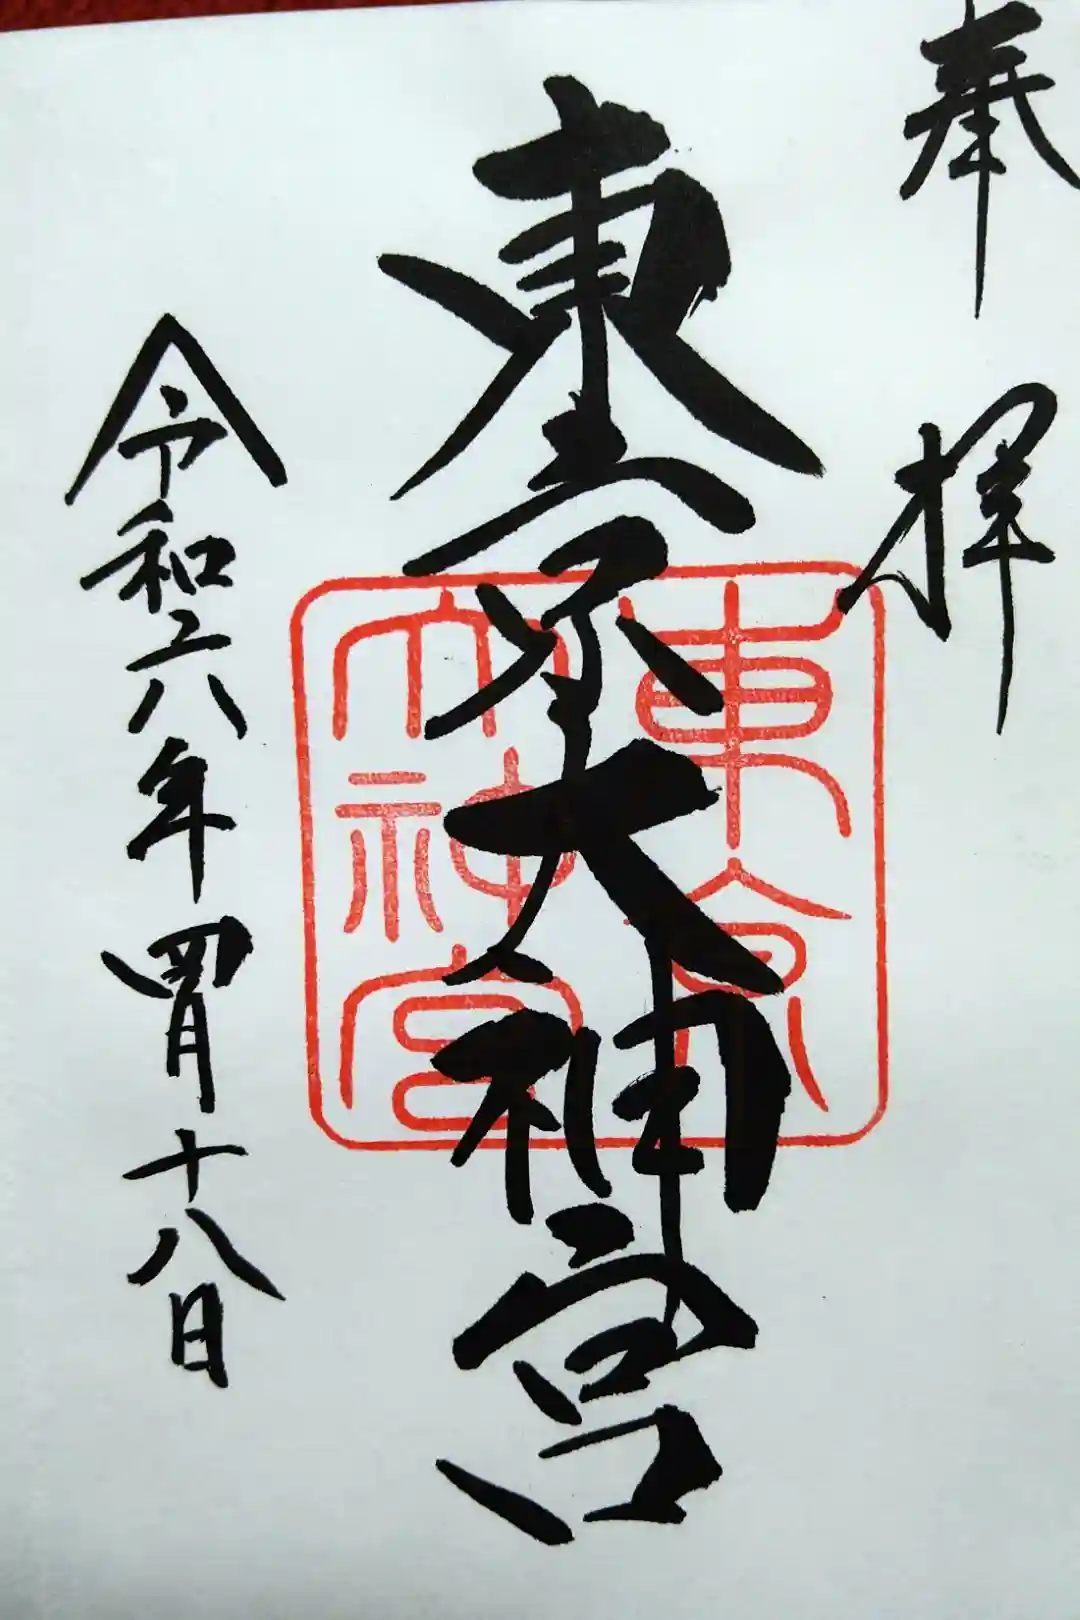 奉拝
東京大神宮
東京大神宮
令和六年四月十八日